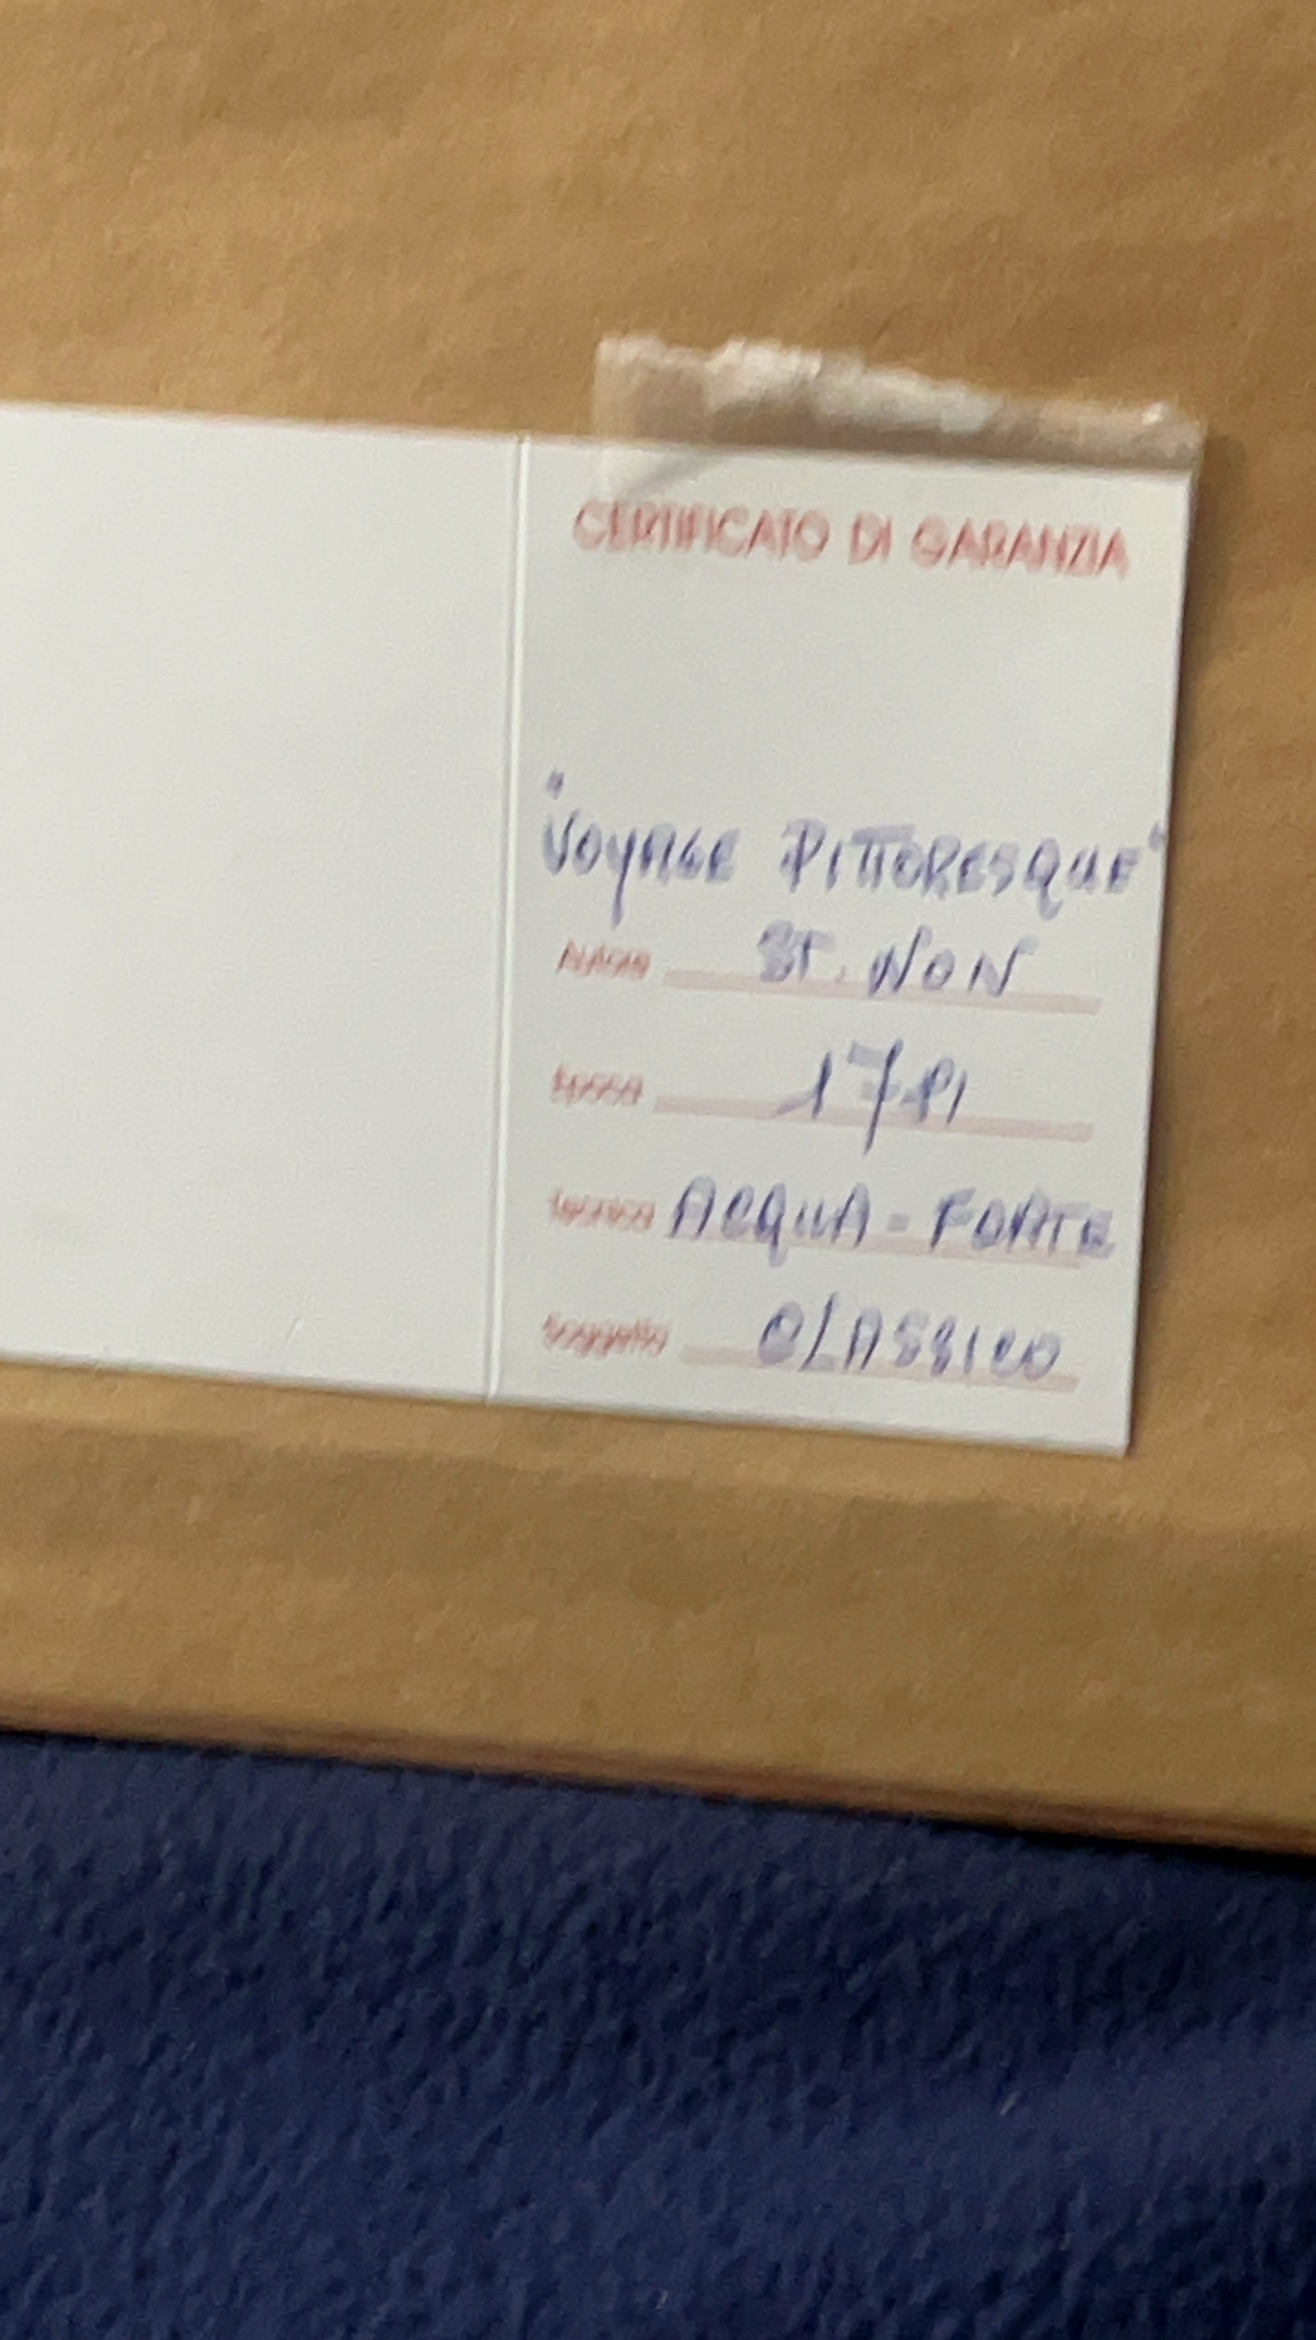 CERTIFICATO DI GARANZIA
"VOYAGE PITTORESQUE"
Autore ST. NON
Epoca 1781
Tecnica ACQUA-FORTE
Soggetto CLASSICO